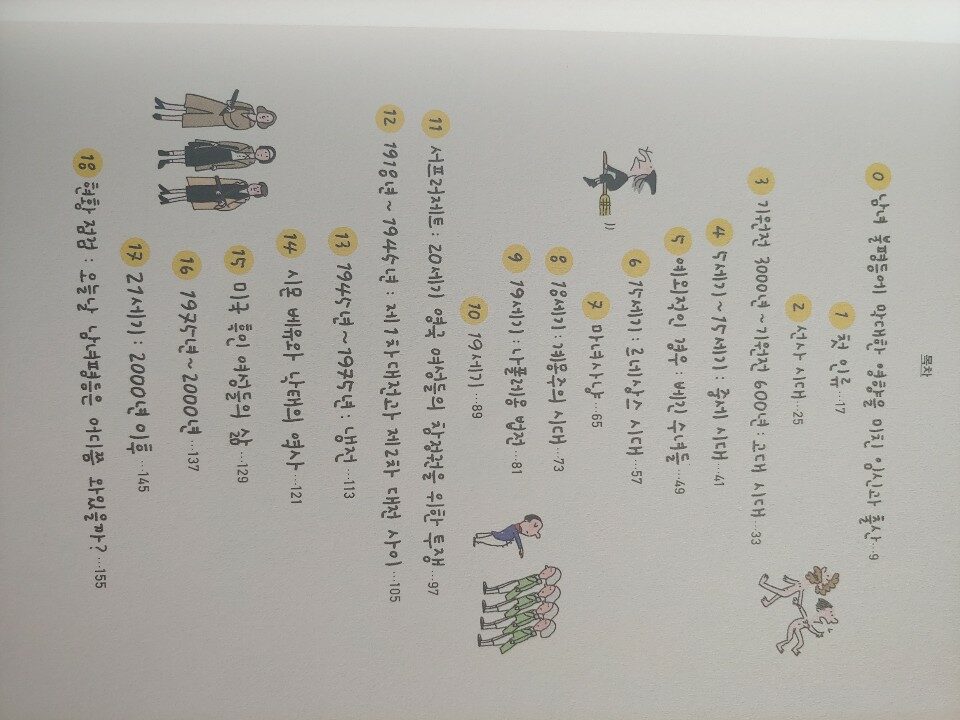 목차
0 남녀 불평등에 막대한 영향을 미친 임신과 출산 …9
1 첫 인류 …17
2 선사 시대 …25
3 기원전 3000년 ~ 기원전 600년 : 고대 시대 …33
4 5세기 ~ 15세기 : 중세 시대 …41
5 예외적인 경우 : 베긴 수녀들 …49
6 15세기 : 르네상스 시대 …57
7 마녀사냥 …65
8 18세기 : 계몽주의 시대 …73
9 19세기 : 나폴레옹 법전 …81
10 19세기 …89
11 서프러제트 : 20세기 영국 여성들의 참정권을 위한 투쟁 …97
12 1918년 ~ 1945년 : 제1차 대전과 제2차 대전 사이 …105
13 1945년 ~ 1975년 : 냉전 …113
14 시몬 베유와 낙태의 역사 …121
15 미국 흑인 여성들의 삶 …129
16 1975년 ~ 2000년 …137
17 21세기 : 2000년 이후 …145
18 현황 점검 : 오늘날 남녀평등은 어디쯤 와있을까? …155